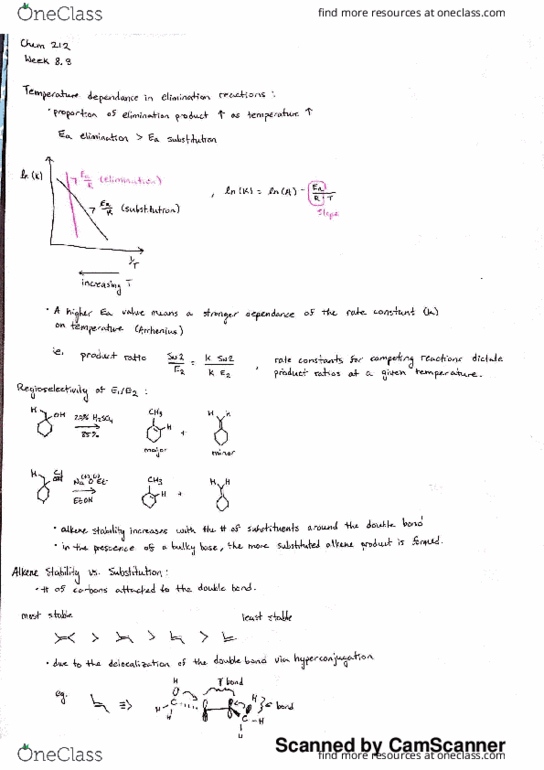 OneClass
find more resources at oneclass.com
Chem 212
Week 8.8
Temperature dependence in elimination reactions:
• proportion of elimination product ↑ as temperature ↑
Ea elimination > Ea substitution
ln (k)
Ea/R (elimination)
Ea/R (substitution)
, ln(k) = ln(A) - Ea/R · 1/T
slope
1/T
increasing T
• A higher Ea value means a stronger dependence of the rate constant (k)
on temperature (Arrhenius)
i.e. product ratio SN2/E2 = k SN2/k E2 , rate constants for competing reactions dictate
product ratios at a given temperature.
Regioselectivity of E1/E2:
H OH H2SO4 CH3 H H H
85%
+
major minor
H Cl Na OEt CH3 H H H
EtOH
+
• alkene stability increases with the # of substituents around the double bond
• in the presence of a bulky base, the more substituted alkene product is formed.
Alkene Stability vs. Substitution:
• # of carbons attached to the double bond.
most stable least stable
> > >
• due to the delocalization of the double bond via hyperconjugation
eg.
bond
H C H H
bond
H C H H
Scanned by CamScanner
OneClass
find more resources at oneclass.com